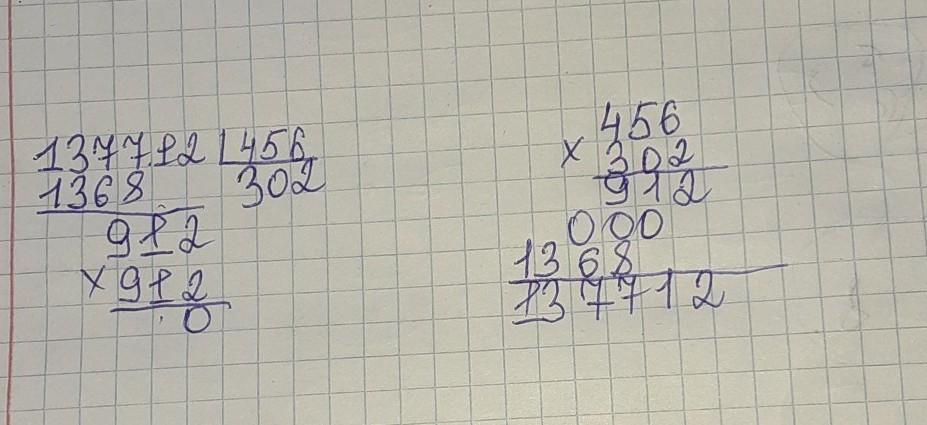 137712 | 456
1368 302
912
× 912
0
456
× 302
912
000
1368
137712